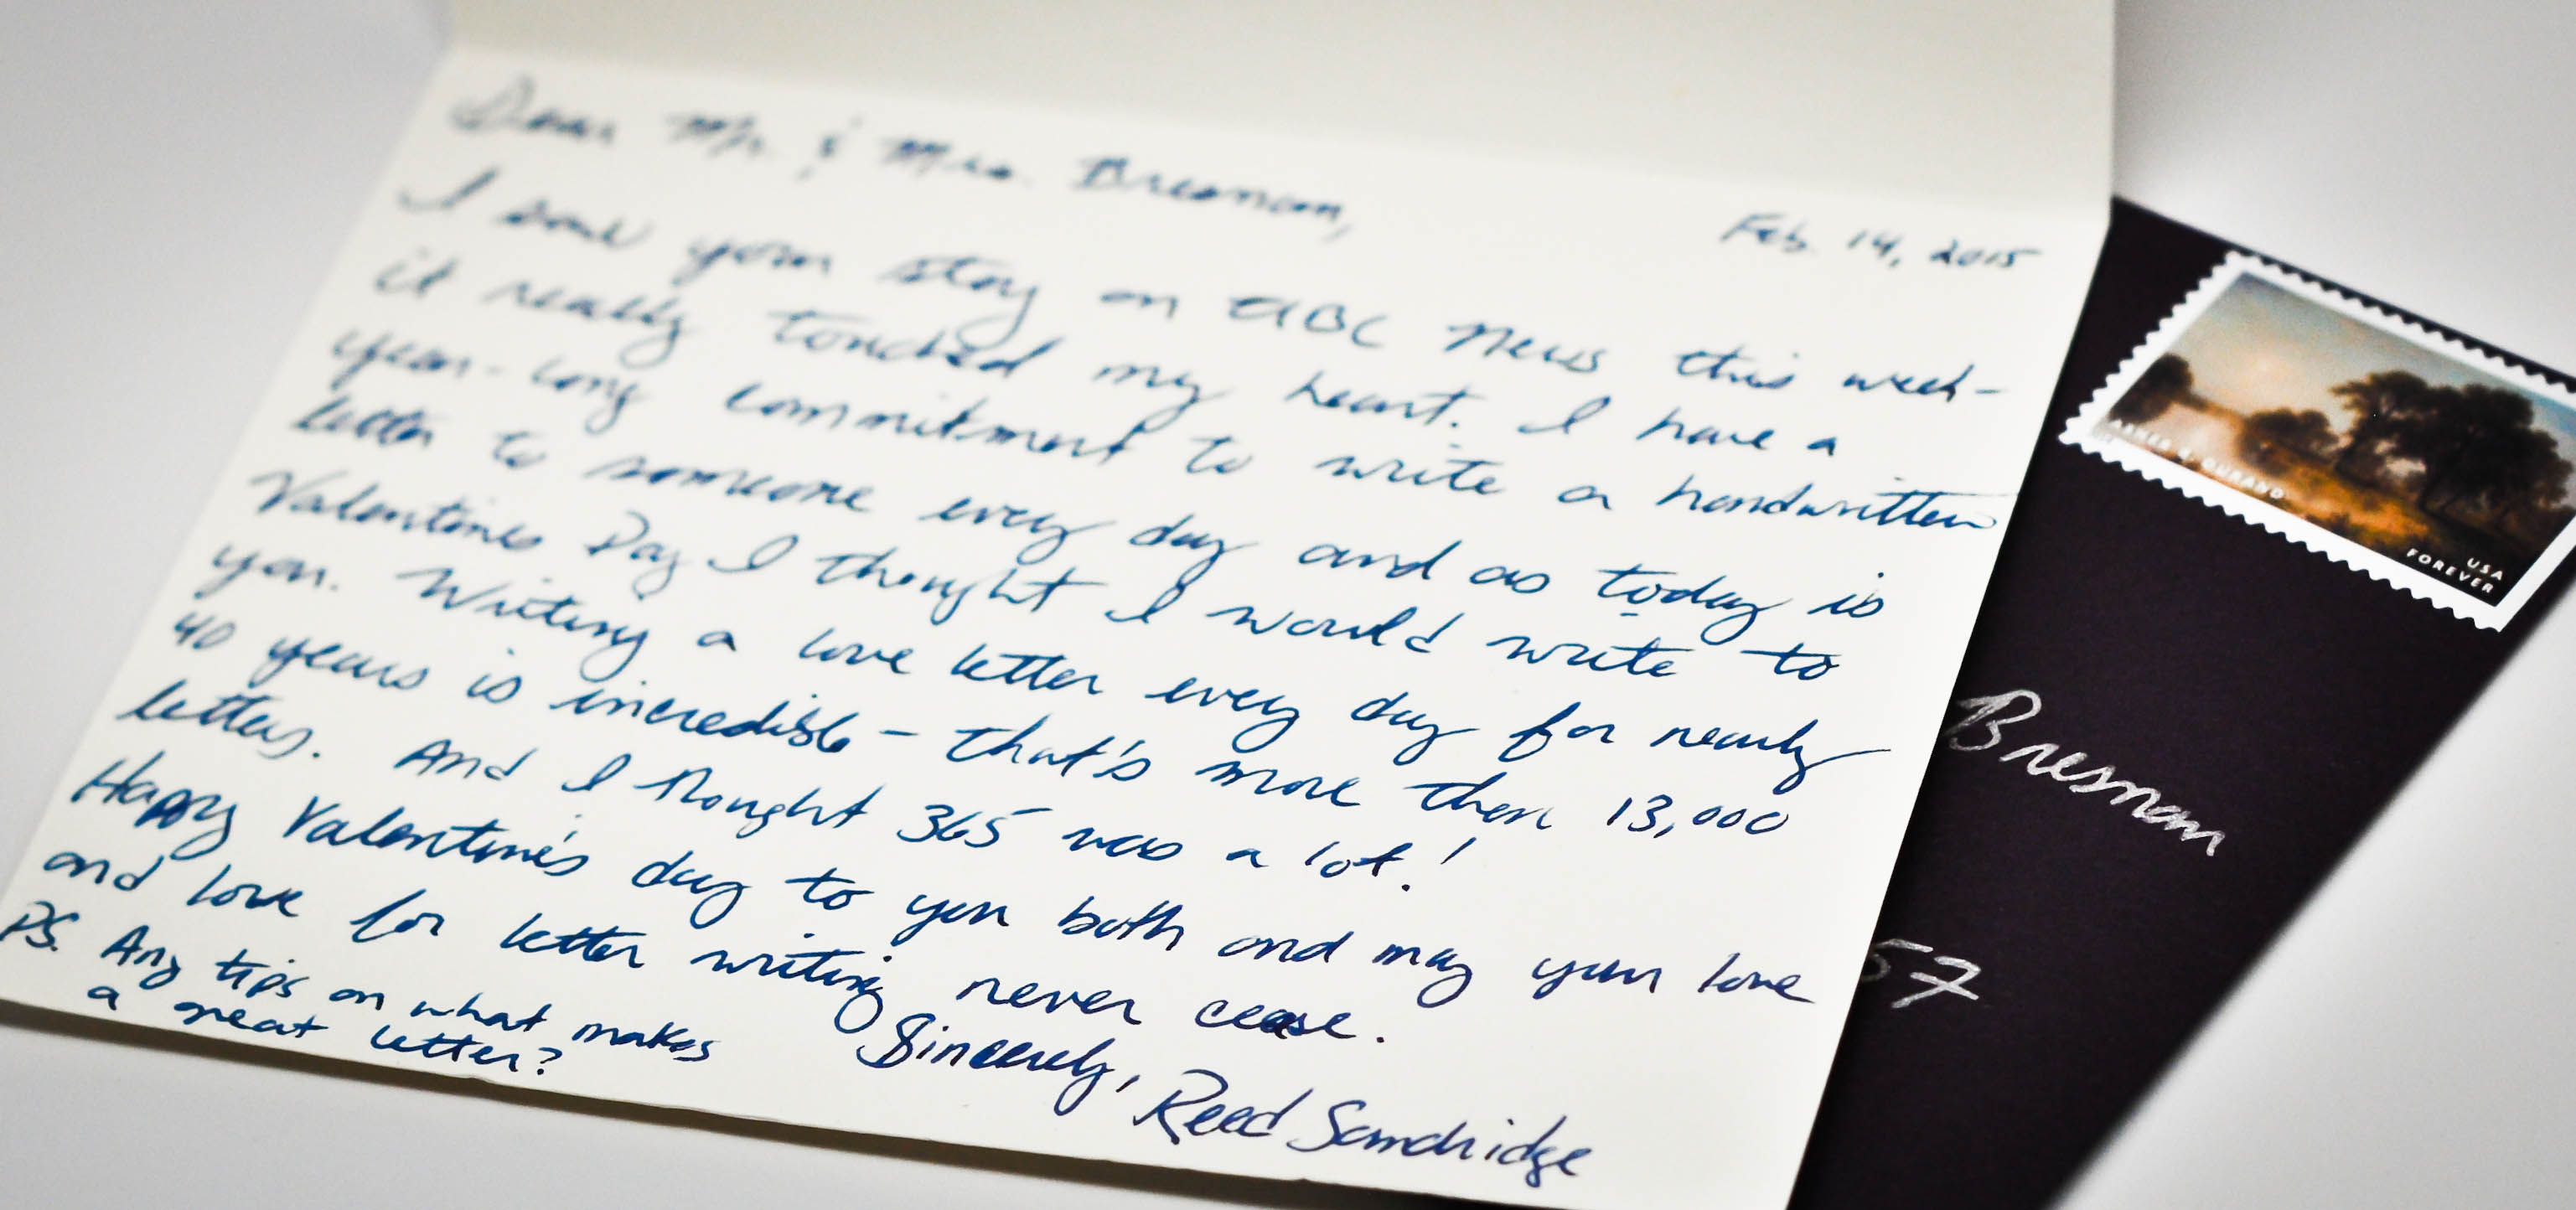 Dear Mr. & Mrs. Bresnan,
Feb. 14, 2015
I saw your stoy on ABC News this week-
it really touched my heart. I have a
year-long commitment to write a handwritten
letter to someone every day and as today is
Valentines Day I thought I would write to
you. Writing a love letter every day for nearly
40 years is incredible - that's more then 13,000
letters. And I thought 365 was a lot!
Happy Valentine's day to you both and may your love
and love for letter writing never cease.
Sincerely, Reed Sandridge
PS. Any tips on what makes
a great letter?
ASHER B. DURAND
USA
FOREVER
Bresnan
57